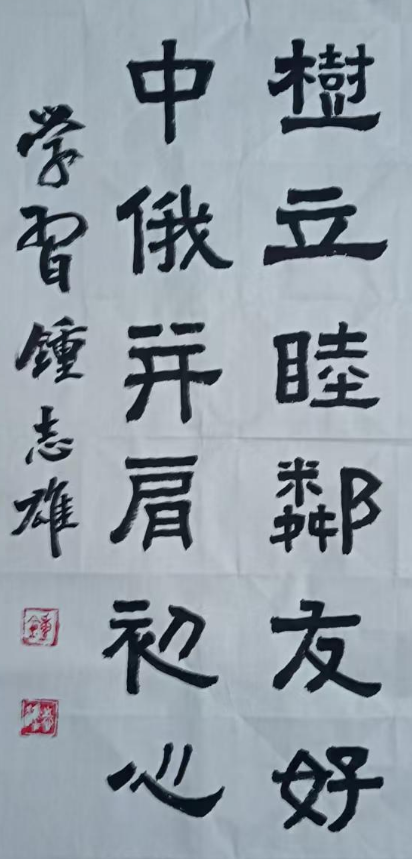 樹立睦鄰友好
中俄并肩初心
学習鍾志雄
鍾